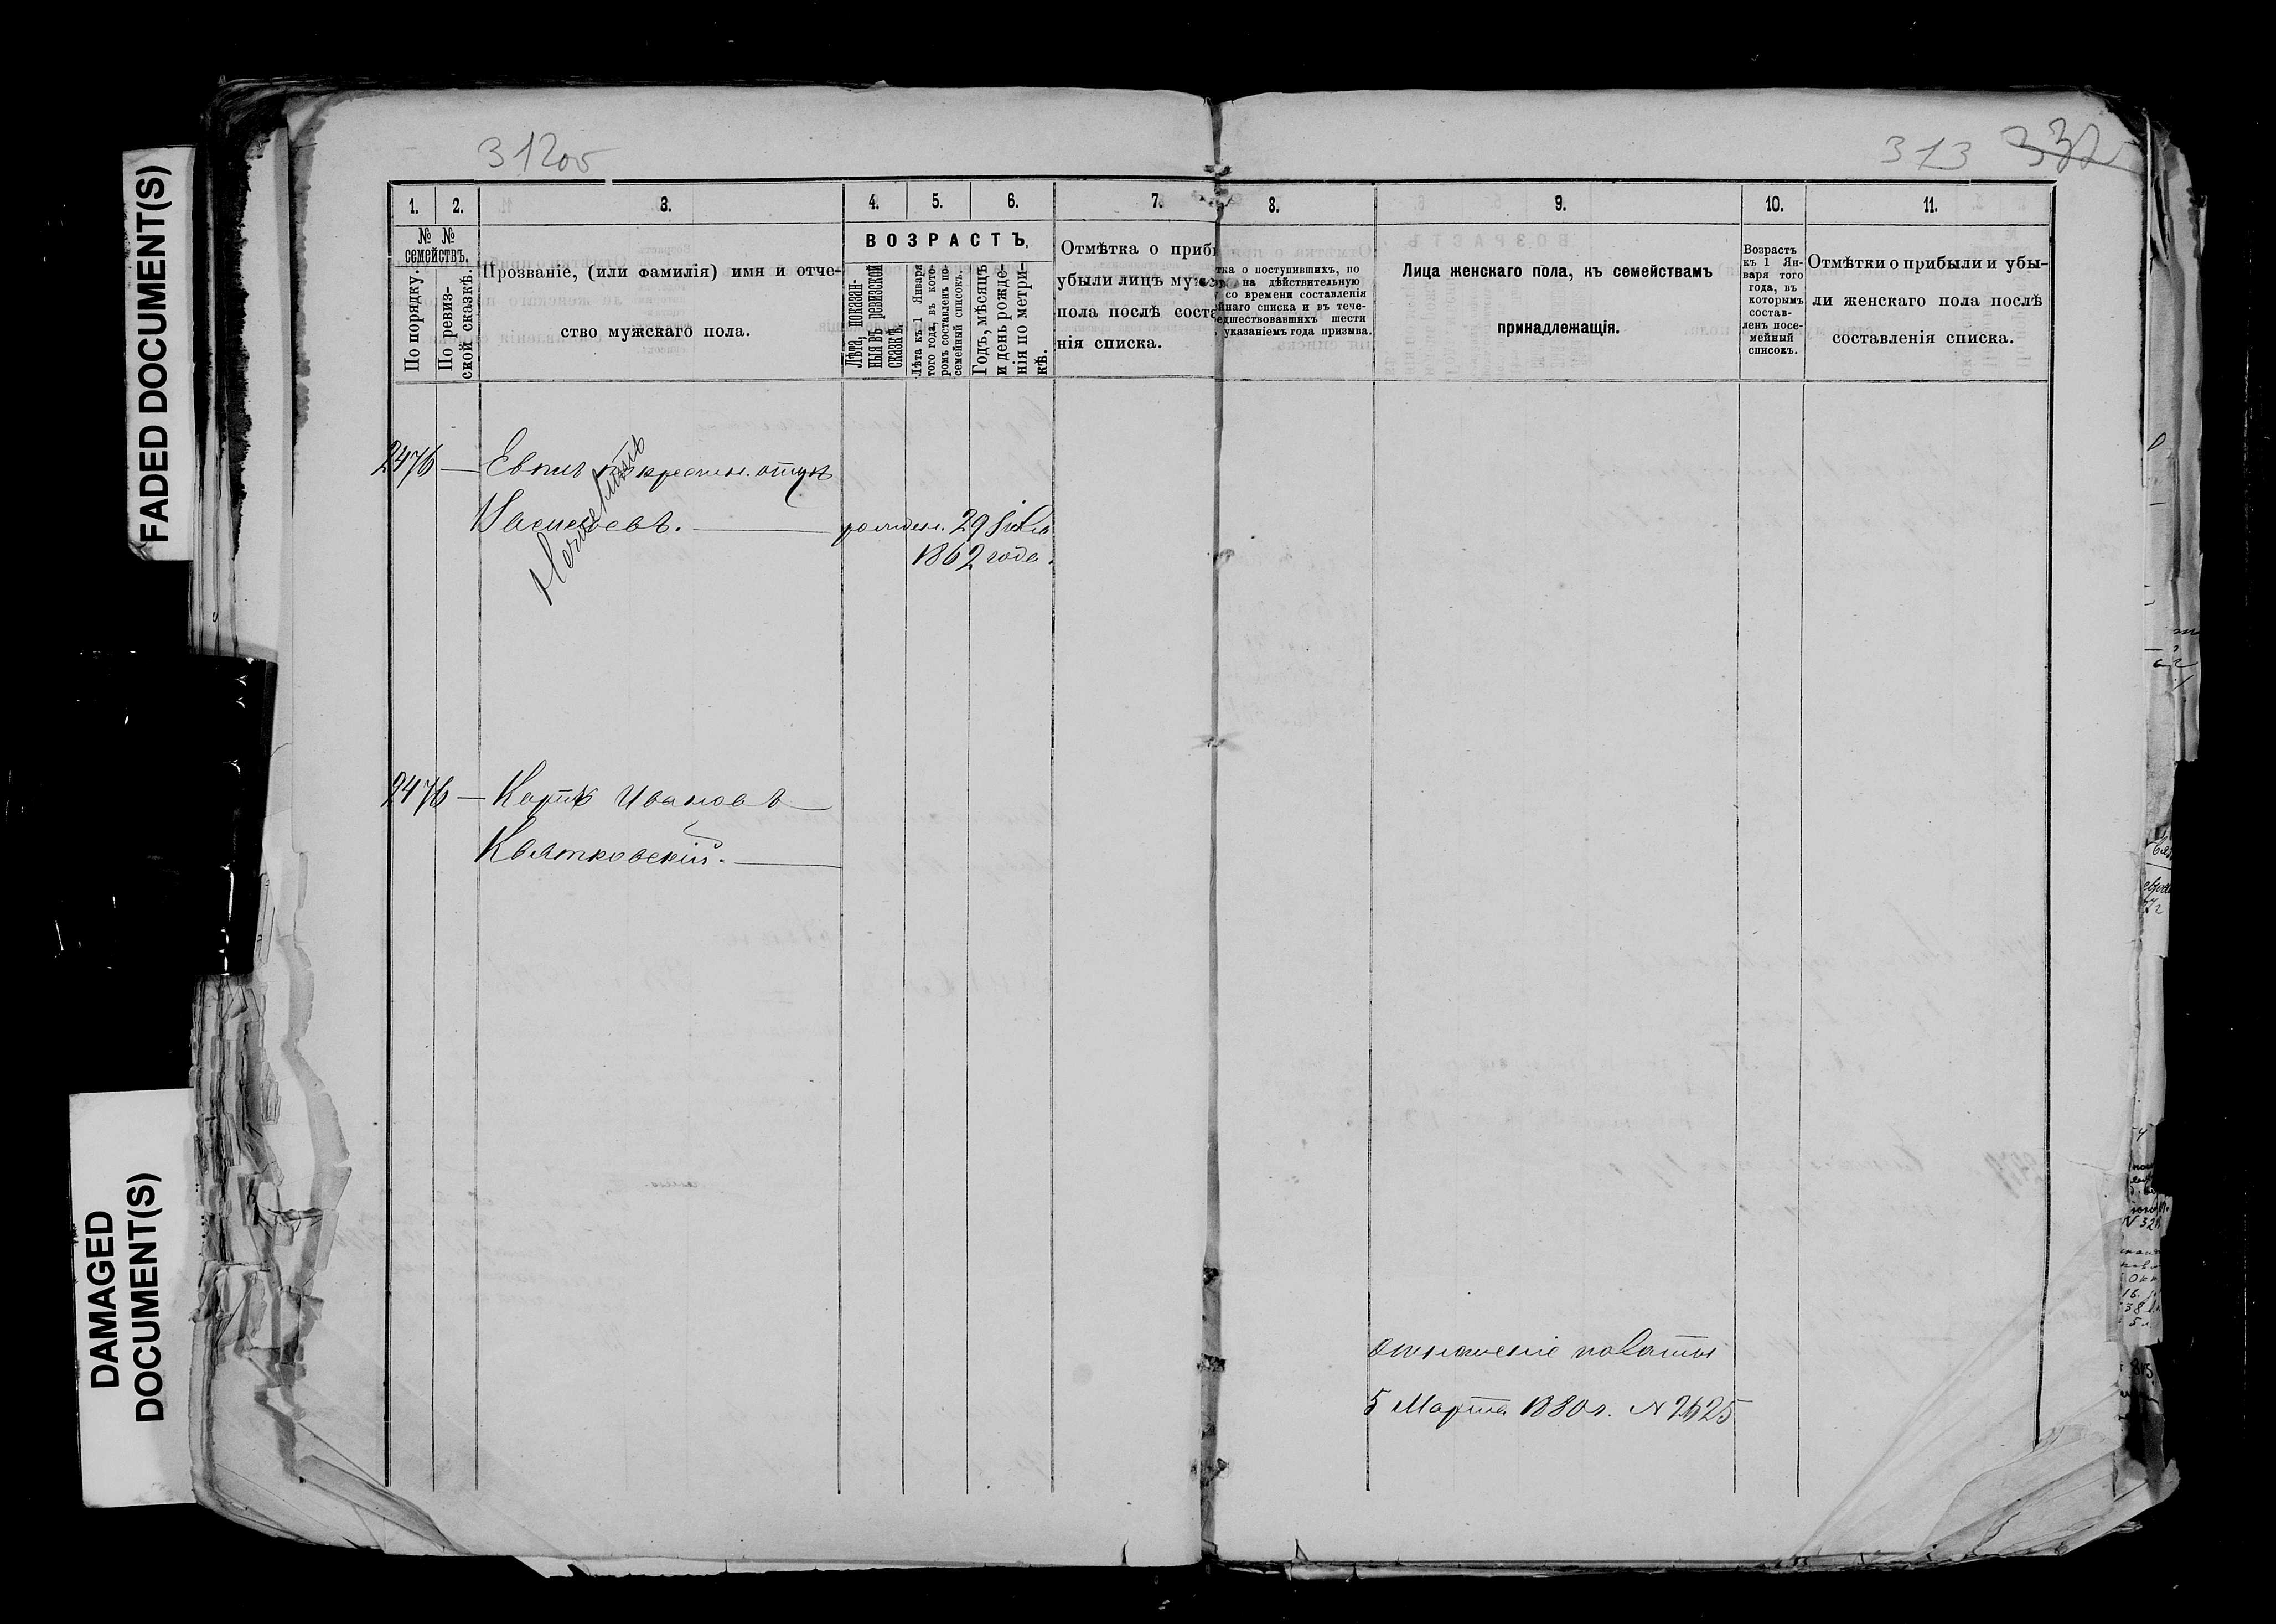 FADED DOCUMENT(S)
DAMAGED
DOCUMENT(S)
312об
313 332
1. 2. 3. 4. 5. 6. 7. 8. 9. 10. 11.
№ №
семействъ.
По порядку.
По ревиз-
ской сказкѣ.
Прозваніе, (или фамилія) имя и отче-
ство мужскаго пола.
ВОЗРАСТЪ.
Лѣта, показан-
ныя въ ревизской
сказкѣ.
Лѣта къ 1 Января
того года, въ кото-
ромъ составленъ по-
семейный списокъ.
Годъ, мѣсяцъ
и день рожде-
нія по метри-
кѣ.
Отмѣтка о приб
убыли лицъ му
пола послѣ соста
нія списка.
тка о поступившихъ, по
на дѣйствительную
со времени составленія
наго списка и въ тече-
едшествовавшихъ шести
указаніемъ года призыва.
Лица женскаго пола, къ семействамъ
принадлежащія.
Возрастъ
къ 1 Ян-
варя того
года, въ
которымъ
состав-
ленъ посе-
мейный
списокъ.
Отмѣтки о прибыли и убы-
ли женскаго пола послѣ
составленія списка.
2476 — отцѣ
рожден. 29
1862 года.
2476 — Карпъ Ивановъ
Квятковскій.
отношеніе палаты
5 Марта 1880 г. N 2625